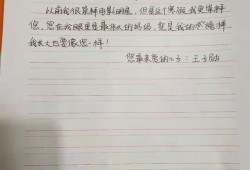 以前我很崇拜电影明星，但是这个寒假我更崇拜
您，您在我眼里是最伟大的妈妈，您是我的榜样
我长大也要像您一样！
您最亲爱的儿子：王子